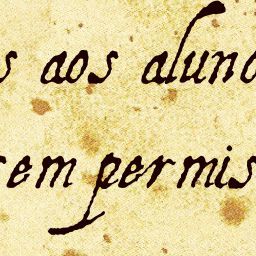 s aos aluno
sem permis